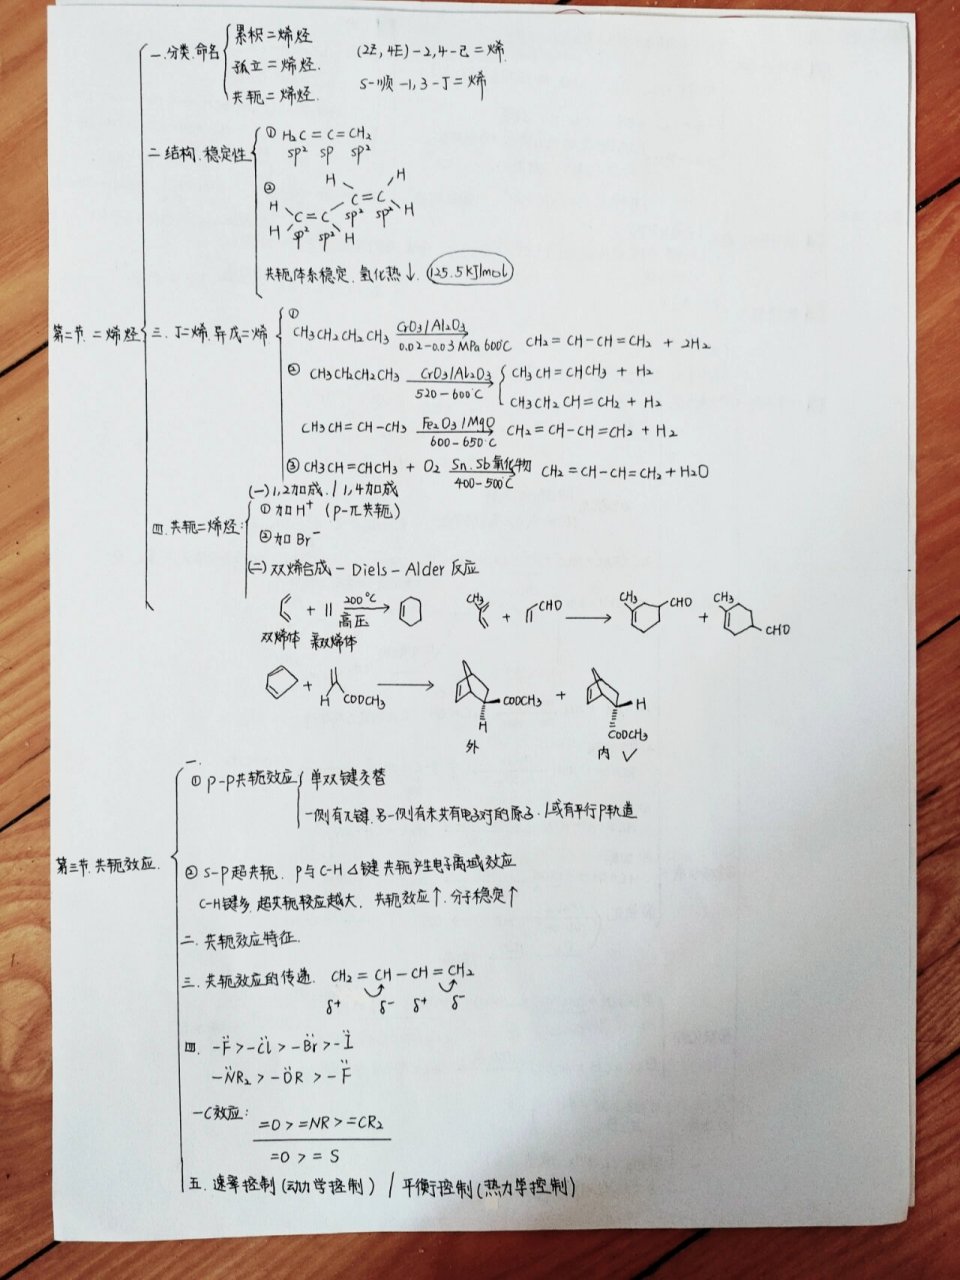 第二节.二烯烃
一.分类.命名
累积二烯烃
孤立二烯烃.
共轭二烯烃.
(2Z,4E)-2,4-己二烯.
S-顺-1,3-丁二烯
二.结构.稳定性
① H2C=C=CH2
sp² sp sp²
②
H H
C=C
H C=C sp² sp² H
H sp² sp² H
共轭体系稳定.氢化热↓. 125.5KJ/mol
三.丁二烯.异戊二烯
①
CH3CH2CH2CH3 CrO3/Al2O3 0.02-0.03MPa 600℃ CH2=CH-CH=CH2 + 2H2
② CH3CH2CH2CH3 CrO3/Al2O3 520-600℃ CH3CH=CHCH3 + H2
CH3CH2CH=CH2 + H2
CH3CH=CH-CH3 Fe2O3/MgO 600-650℃ CH2=CH-CH=CH2 + H2
③ CH3CH=CHCH3 + O2 Sn.Sb氧化物 400-500℃ CH2=CH-CH=CH2+H2O
四.共轭二烯烃:
(一)1,2加成./1,4加成
① 加H⁺ (p-π共轭)
② 加Br⁻
(二)双烯合成-Diels-Alder反应
+ 200℃ 高压
双烯体 亲双烯体
CH3 + CHO CH3 CHO + CH3 CHO
+ H COOCH3 COOCH3 H + H COOCH3
外 内 ✓
第三节.共轭效应.
一.
① p-p共轭效应 单双键交替
一侧有π键.另一侧有未共有电子对的原子./或有平行p轨道
② s-p超共轭. p与C-H σ键共轭产生电子离域效应
C-H键多.超共轭效应越大. 共轭效应↑.分子稳定↑
二.共轭效应特征.
三.共轭效应的传递. CH2=CH-CH=CH2
δ⁺ δ⁻ δ⁺ δ⁻
四. -F̈>-C̈l>-B̈r>-Ï
-N̈R2>-ÖR>-F̈
-C效应: =O>=NR>=CR2
=O>=S
五.速率控制(动力学控制) / 平衡控制(热力学控制)